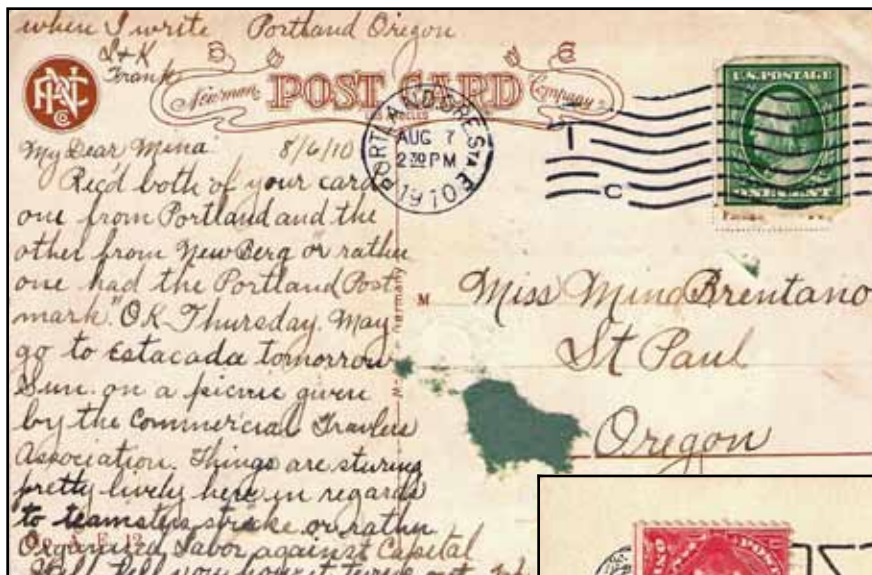 when I write Portland Oregon
L + K
Frank
PNC
Co
Newman POST CARD Company
LOS ANGELES
PORTLAND, ORE. STA. E
AUG 7
2 30 PM
1910
U.S. POSTAGE
ONE CENT
My Dear Mina 8/6/10
Rec'd both of your cards
one from Portland and the
other from New Berg "or rather
one had the Portland Post
mark." OK Thursday. May
go to Estacada tomorrow
Sun. on a picnic given
by the Commercial Travlers
Association. Things are sturing
pretty lively here in regards
to teamsters stricke or rather
Organized Labor against Capital
Will tell you how it turns out
Germany
M Miss Mina Brentano
St Paul
Oregon